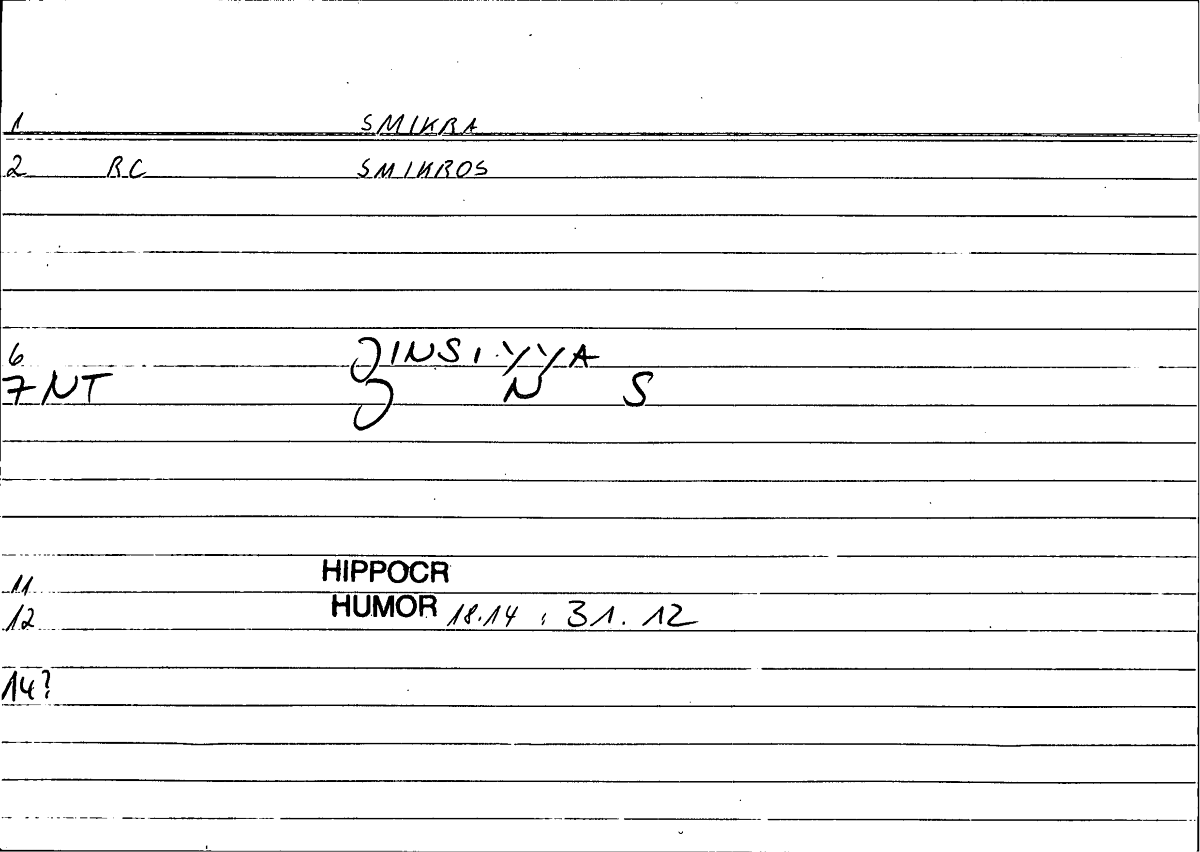 1 SMIKRA
2 RC SMIKROS
6 ʒINSI.YYA
7 NT ʒ N S
11 HIPPOCR
12 HUMOR 18.14 : 31.12
14?